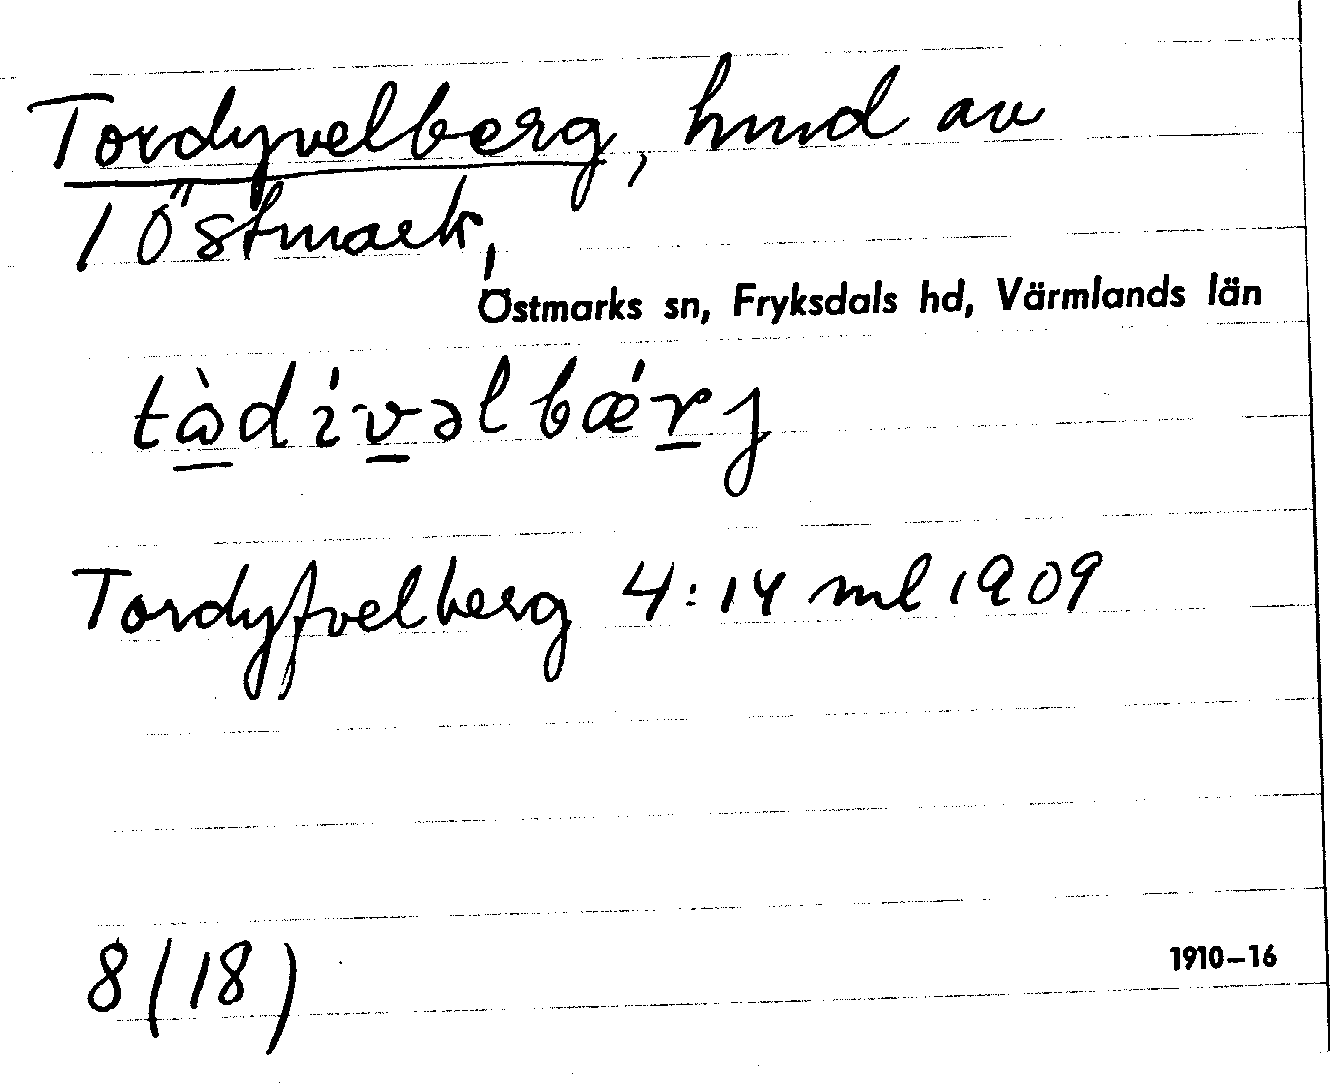 Tordyvelberg, hmd av
1 Östmark,
Östmarks sn, Fryksdals hd, Värmlands län
tὼdívəlbǽrj
Tordyfvelberg 4:14 ml 1909
8 (18)
1910–16